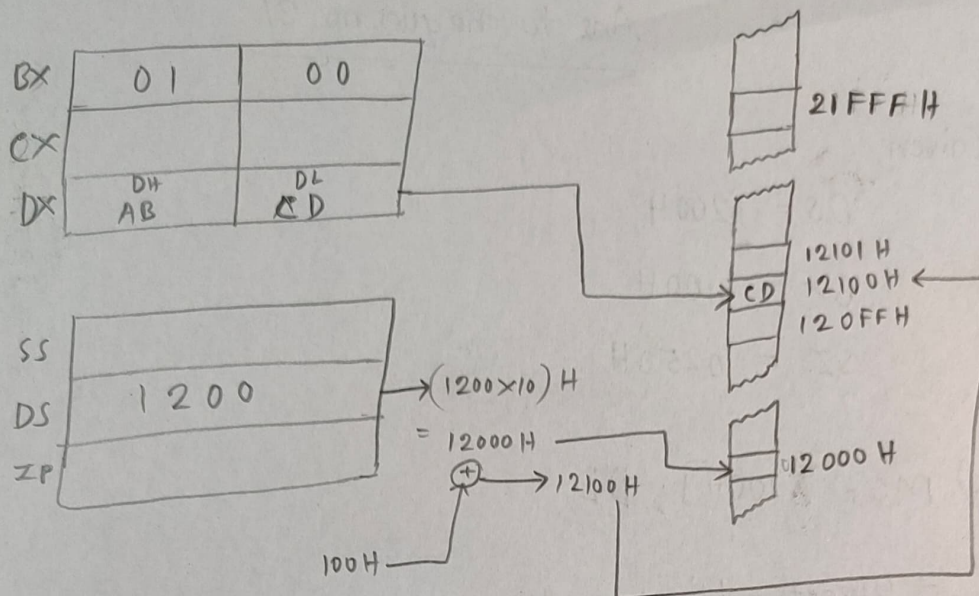 BX 01 00
CX
DX DH AB DL CD
21FFFH
12101H
CD 12100H
120FFH
SS
DS 1200 (1200×10)H
= 12000H
12000H
IP
+ 12100H
100H